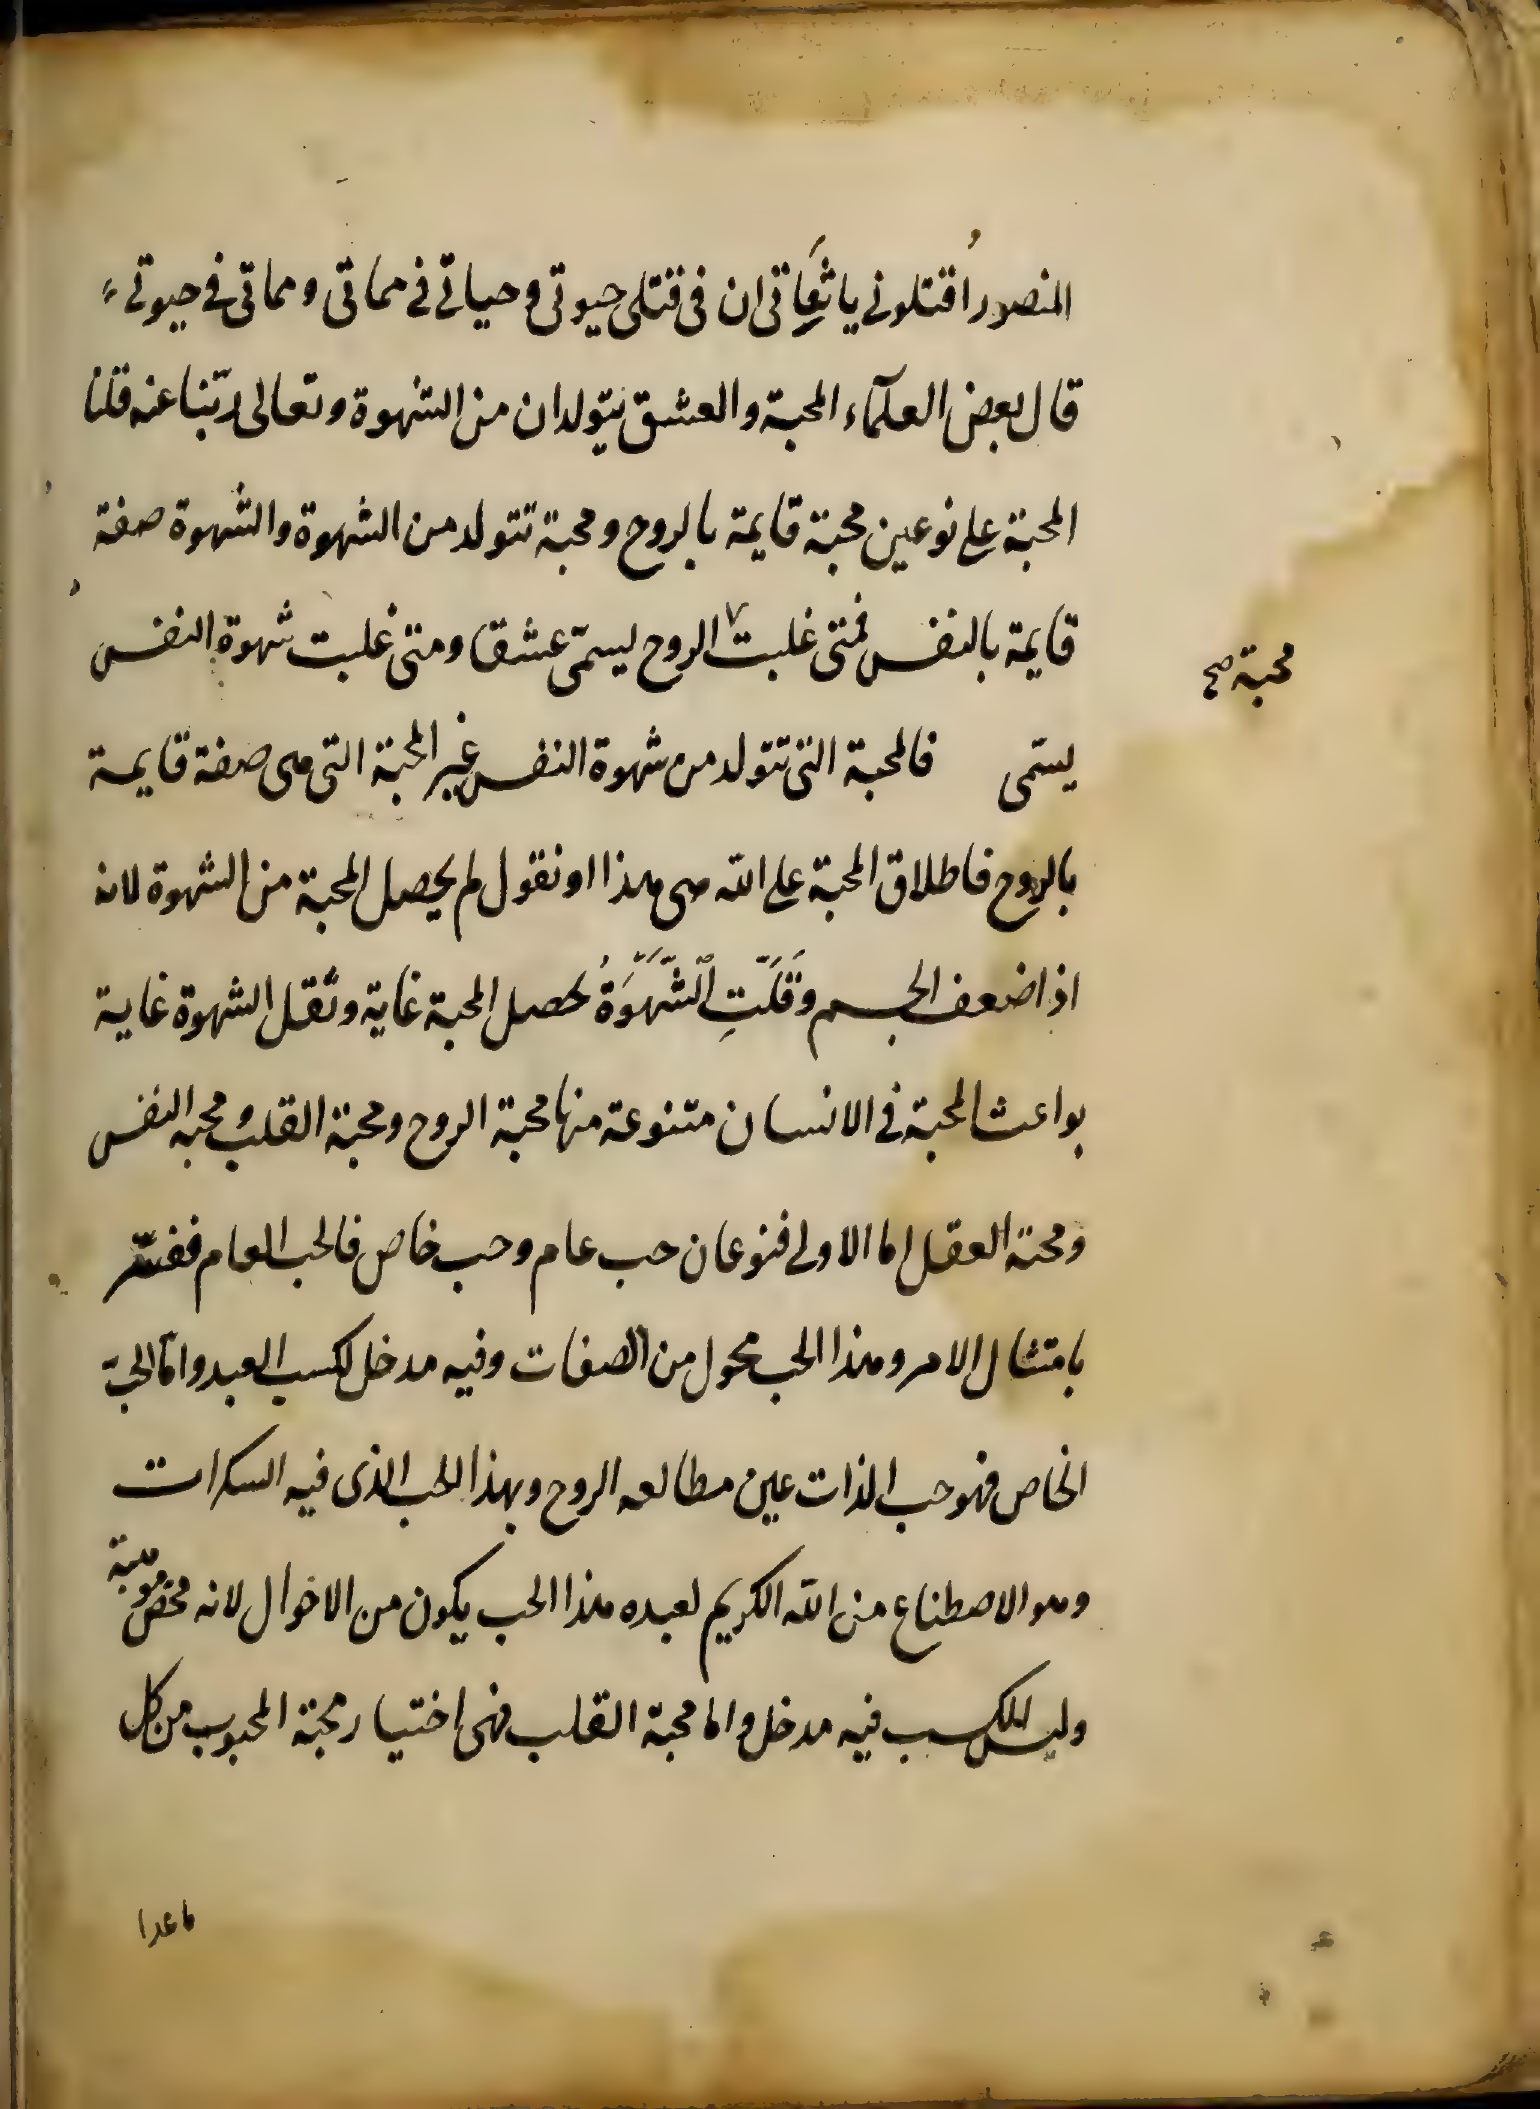 المنصور اُقتلوني يا ثِقَاتي ان في قتلي حيوتي وحياتي في مماتي ومماتي في حيوتي
قال بعض العلمآء المحبة والعشق يتولدان من الشهوة وتعالى ربّنا عنه قلنا
المحبة على نوعين محبة قايمة بالروح ومحبة تتولد من الشهوة والشهوة صفة
قايمة بالنفس فمتى غلبت الروح يسمّى عشقا ومتى غلبت شهوة النفس
محبة صح
يسمّى فالمحبة التي تتولد من شهوة النفس غير المحبة التي هي صفة قايمة
بالروح فاطلاق المحبة على الله هي هذا او نقول لم يحصل المحبة من الشهوة لانه
اذا ضعف الجسم وَقَلَّتِ الشَّهَوَةُ يحصل المحبة غاية وتقل الشهوة غاية
بواعث المحبة في الانسان متنوعة منها محبة الروح ومحبة القلب ومحبه النفس
ومحبة العقل اما الاولى فنوعان حب عام وحب خاص فالحب العام ففسّر
بامتثال الامر وهذا الحب محول من الصفات وفيه مدخل لكسب العبد وامّا الحبّ
الخاص فهو حب الذات عين مطالعه الروح وبهذا الحب الذي فيه السكرات
وهو الاصطناع من الله الكريم لعبده هذا الحب يكون من الاخوال لانه محض موهبة
وليس للكسب فيه مدخل واما محبة القلب فهي اختيار محبة المحبوب من كل
ما عدا